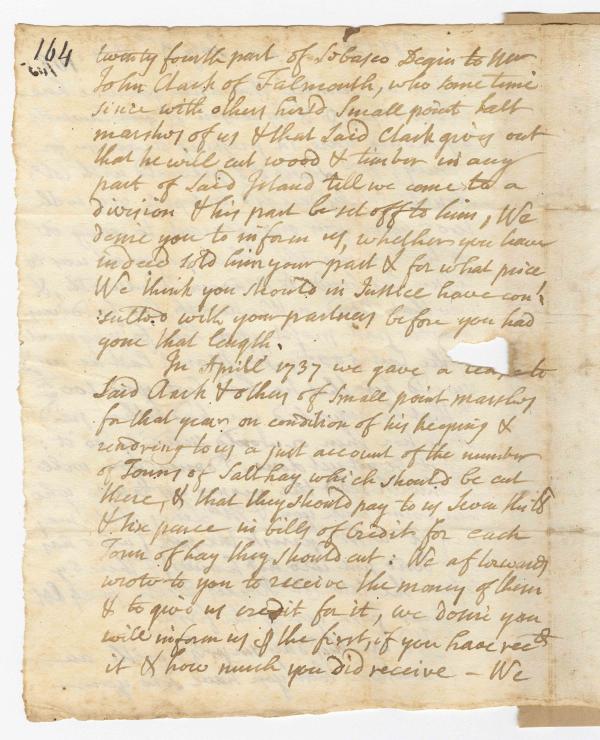 164
twenty fourth part of Sebasco Degin to Mr
John Clark of Falmouth, who some time
since with others hired Small point salt
marshes of us & that Said Clark gives out
that he will cut wood & timber in any
part of Said Island till we come to a
division & his part be set off to him, We
desire you to inform us, whether you have
indeed sold him your part & for what price
We think you should in Justice have con=
:sulted with your partners before you had
gone that length.
In Aprill 1737 we gave a lease to
Said Clark & others of Small point marshes
for that year on condition of his keeping &
rendring to us a just account of the number
of Touns of Salt hay which should be cut
there, & that they should pay to us Seven shills
& six pence in bills of Credit for each
Toun of hay they should cut: We afterwards
wrote to you to receive the money of them
& to give us credit for it, we desire you
will inform us of the first, if you have recd
it & how much you did receive - We